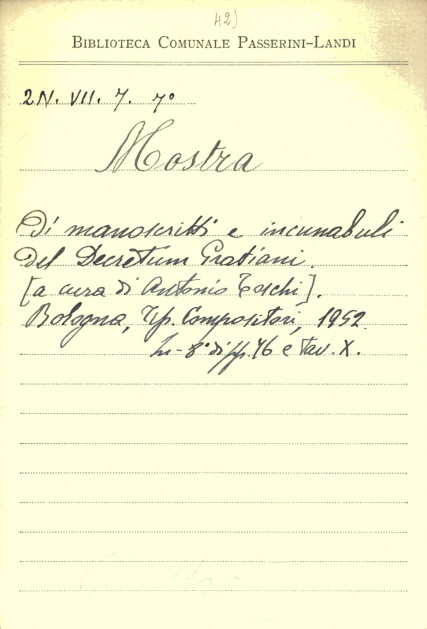 42)
BIBLIOTECA COMUNALE PASSERINI-LANDI
2N. VII. 7. 7º
Mostra
Di manoscritti e incunabuli
del Decretum Gratiani.
[a cura di Antonio Toschi].
Bologna, Tip. Compositori, 1952.
In-8º di pp. 46 e tav. X.